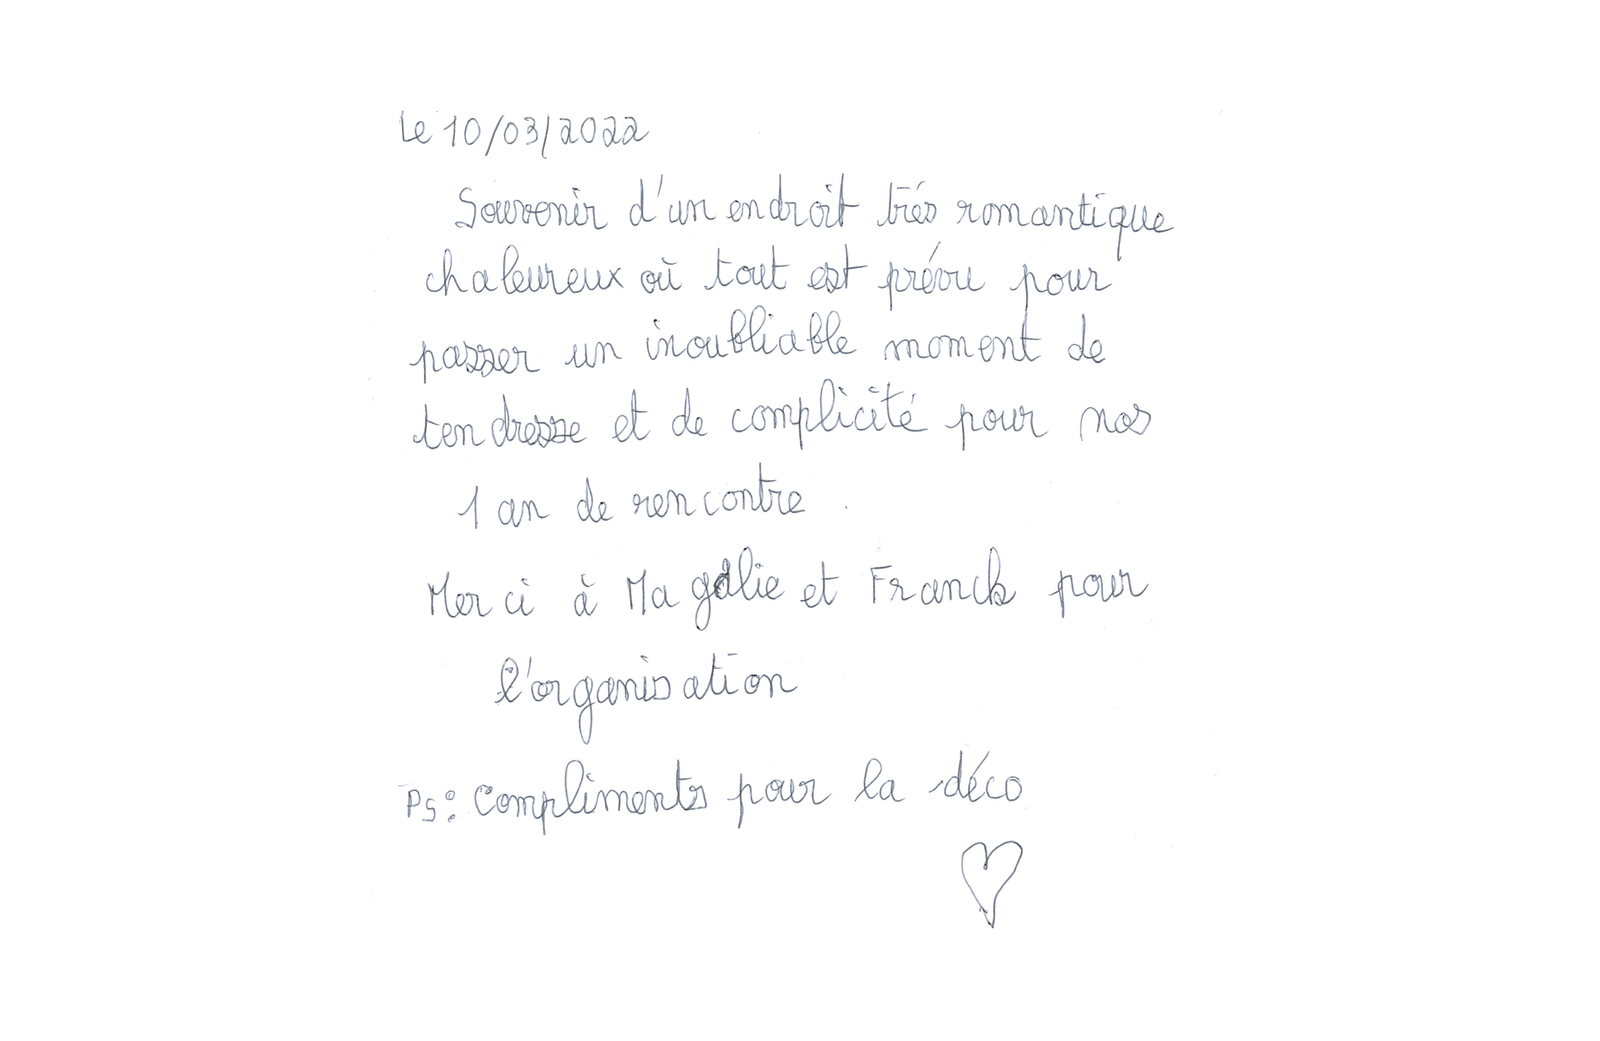 Le 10/03/2022
Souvenir d'un endroit trés romantique
chaleureux où tout est prévu pour
passer un inoubliable moment de
tendresse et de complicité pour nos
1 an de rencontre.
Merci à Magalie et Franck pour
l'organisation
Ps: Compliments pour la déco